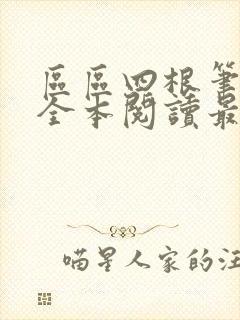 區區四根筆
全本閱讀最
喵星人家的汪